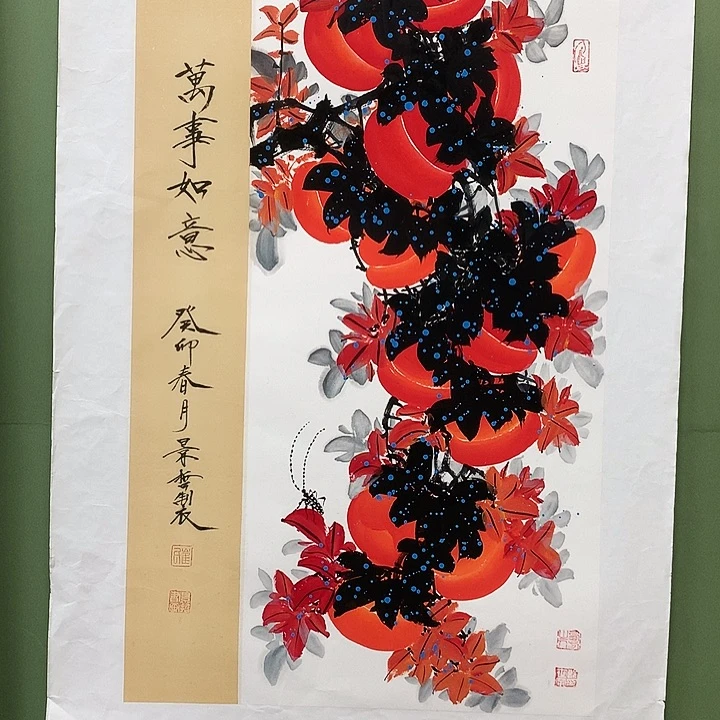 萬事如意
癸卯春月景雲製